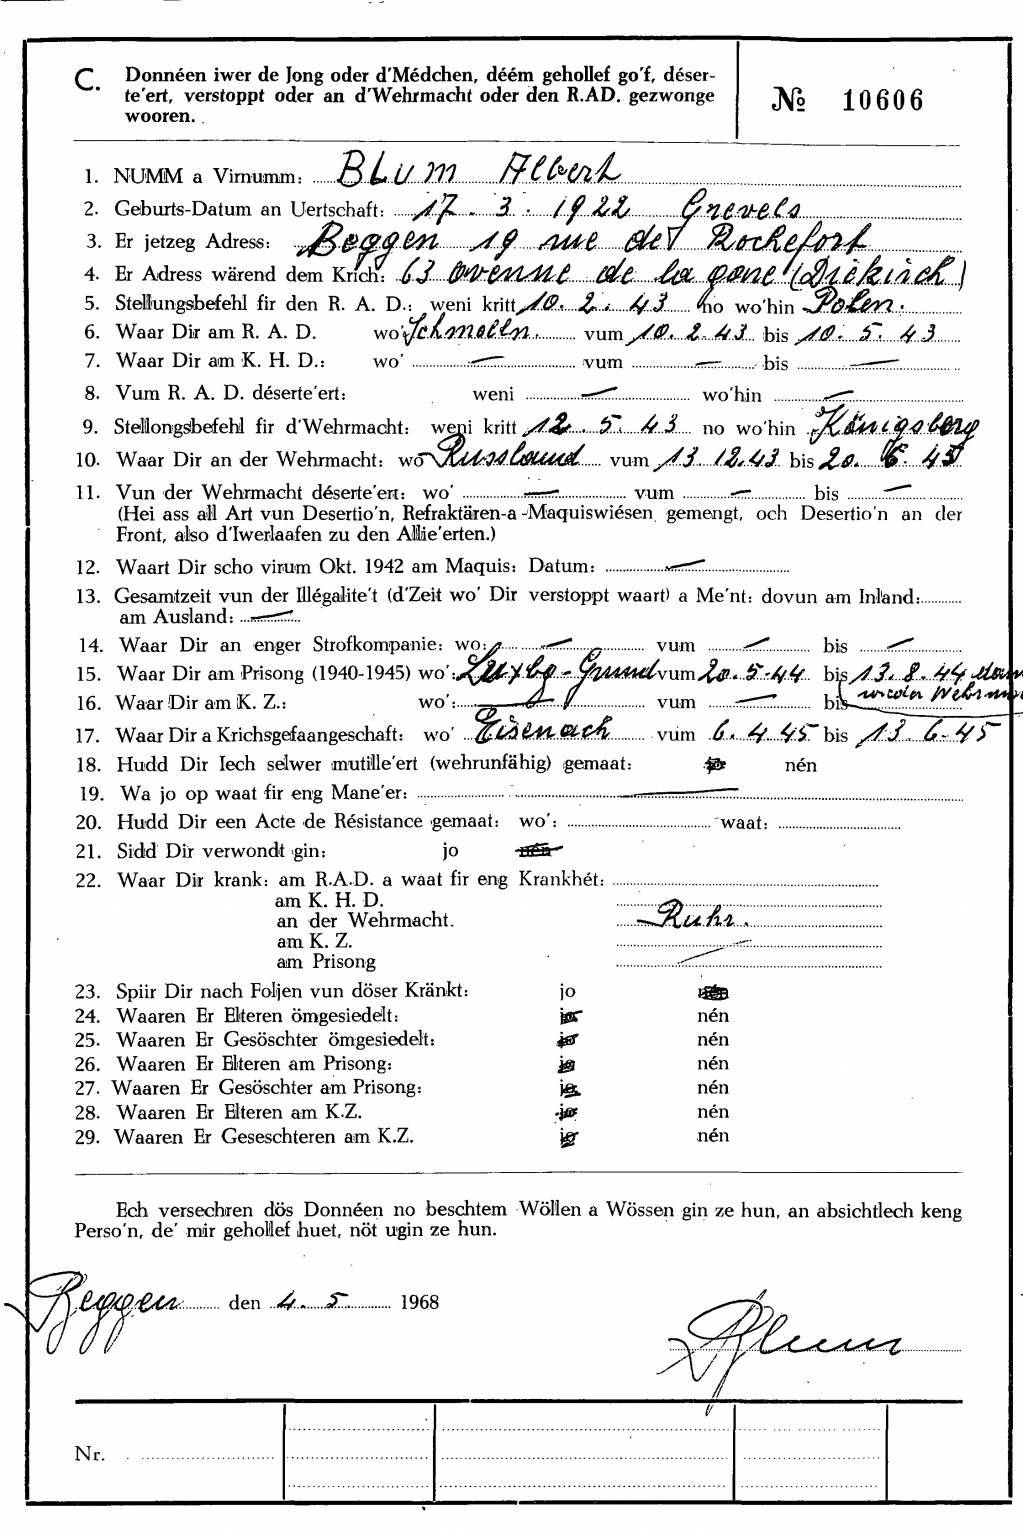 C. Donnéen iwer de Jong oder d'Médchen, déém gehollef go'f, déser-
te'ert, verstoppt oder an d'Wehrmacht oder den R.AD. gezwonge
wooren.
№ 10606
1. NUMM a Virnumm: BLUM Albert
2. Geburts-Datum an Uertschaft: 17. 3. 1922 Grevels
3. Er jetzeg Adress: Beggen 19 rue de Rochefort
4. Er Adress wärend dem Krich: 63 avenue de la gare (Diekirch)
5. Stellungsbefehl fir den R. A. D.: weni kritt 10. 2. 43 no wo'hin Polen.
6. Waar Dir am R. A. D. wo' Schmolln. vum 10. 2. 43 bis 10. 5. 43
7. Waar Dir am K. H. D.: wo' — vum — bis —
8. Vum R. A. D. déserte'ert: weni — wo'hin —
9. Stellongsbefehl fir d'Wehrmacht: weni kritt 12. 5. 43 no wo'hin Königsberg
10. Waar Dir an der Wehrmacht: wo Russland vum 13 12. 43 bis 20. 6. 45
11. Vun der Wehrmacht déserte'ert: wo' — vum — bis —
(Hei ass all Art vun Desertio'n, Refraktären-a-Maquiswiésen gemengt, och Desertio'n an der
Front, also d'Iwerlaafen zu den Allie'erten.)
12. Waart Dir scho virum Okt. 1942 am Maquis: Datum: —
13. Gesamtzeit vun der Illégalite't (d'Zeit wo' Dir verstoppt waart) a Me'nt: dovun am Inland:
am Ausland: —
14. Waar Dir an enger Strofkompanie: wo: — vum — bis —
15. Waar Dir am Prisong (1940-1945) wo': Luxbg-Grund vum 20. 5. 44 bis 13. 8. 44 dann
wieder Wehrma
16. Waar Dir am K. Z.: wo': — vum — bis
17. Waar Dir a Krichsgefaangeschaft: wo' Eisenach vum 6. 4. 45 bis 13. 6. 45
18. Hudd Dir Iech selwer mutille'ert (wehrunfähig) gemaat: jo nén
19. Wa jo op waat fir eng Mane'er: —
20. Hudd Dir een Acte de Résistance gemaat: wo': waat:
21. Sidd Dir verwondt gin: jo nén
22. Waar Dir krank: am R.A.D. a waat fir eng Krankhét:
am K. H. D.
an der Wehrmacht. Ruhr.
am K. Z. —
am Prisong —
23. Spiir Dir nach Foljen vun döser Kränkt: jo nén
24. Waaren Er Elteren ömgesiedelt: jo nén
25. Waaren Er Gesöschter ömgesiedelt: jo nén
26. Waaren Er Elteren am Prisong: jo nén
27. Waaren Er Gesöschter am Prisong: jo nén
28. Waaren Er Elteren am K.Z. jo nén
29. Waaren Er Geseschteren am K.Z. jo nén
Ech versechren dös Donnéen no beschtem Wöllen a Wössen gin ze hun, an absichtlech keng
Perso'n, de' mir gehollef huet, nöt ugin ze hun.
Beggen den 4. 5 1968
ABlum
Nr.